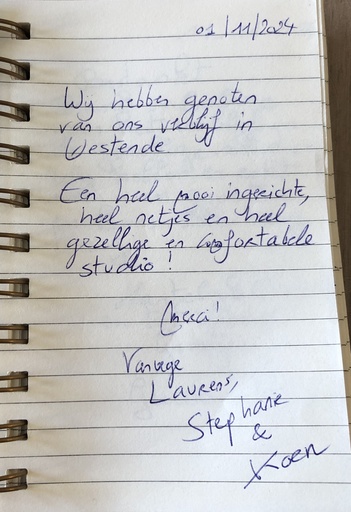 01/11/2024
Wij hebben genoten
van ons verblijf in
Westende
Een heel mooi ingerichte,
heel netjes en heel
gezellige en comfortabele
studio!
Merci!
Vanwege
Laurens,
Stephanie
&
Koen